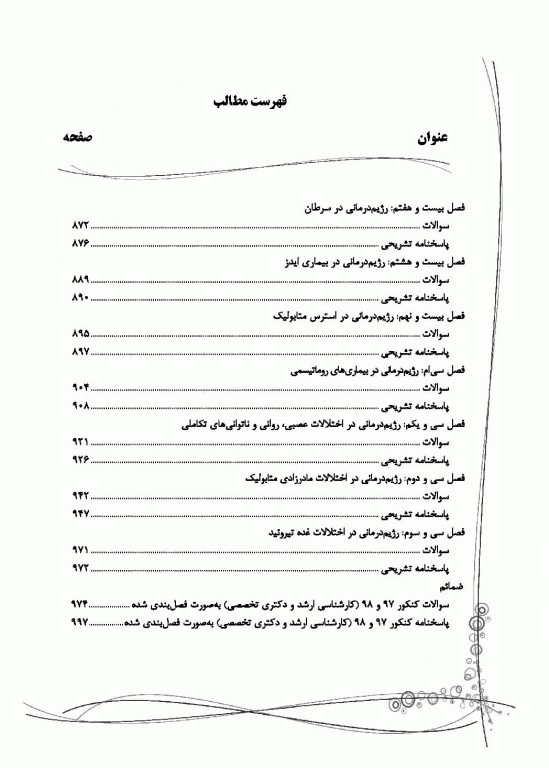 فهرست مطالب
عنوان صفحه
فصل بیست و هفتم: رژیم‌درمانی در سرطان
سوالات ........ ۸۷۲
پاسخنامه تشریحی ........ ۸۷۶
فصل بیست و هشتم: رژیم‌درمانی در بیماری ایدز
سوالات ........ ۸۸۹
پاسخنامه تشریحی ........ ۸۹۰
فصل بیست و نهم: رژیم‌درمانی در استرس متابولیک
سوالات ........ ۸۹۵
پاسخنامه تشریحی ........ ۸۹۷
فصل سی‌اُم: رژیم‌درمانی در بیماری‌های روماتیسمی
سوالات ........ ۹۰۴
پاسخنامه تشریحی ........ ۹۰۸
فصل سی و یکم: رژیم‌درمانی در اختلالات عصبی، روانی و ناتوانی‌های تکاملی
سوالات ........ ۹۲۱
پاسخنامه تشریحی ........ ۹۲۶
فصل سی و دوم: رژیم‌درمانی در اختلالات مادرزادی متابولیک
سوالات ........ ۹۴۲
پاسخنامه تشریحی ........ ۹۴۷
فصل سی و سوم: رژیم‌درمانی در اختلالات غده تیروئید
سوالات ........ ۹۷۱
پاسخنامه تشریحی ........ ۹۷۲
ضمائم
سوالات کنکور ۹۷ و ۹۸ (کارشناسی ارشد و دکتری تخصصی) به‌صورت فصل‌بندی شده ........ ۹۷۴
پاسخنامه کنکور ۹۷ و ۹۸ (کارشناسی ارشد و دکتری تخصصی) به‌صورت فصل‌بندی شده ........ ۹۹۷